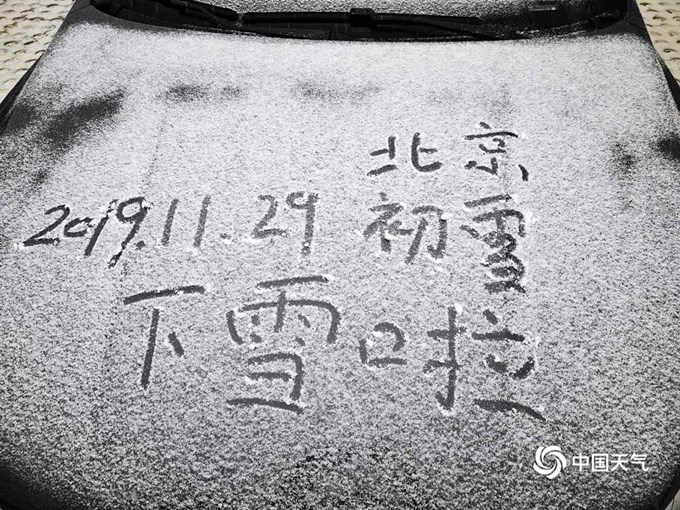 北京
2019.11.29 初雪
下雪啦
中国天气